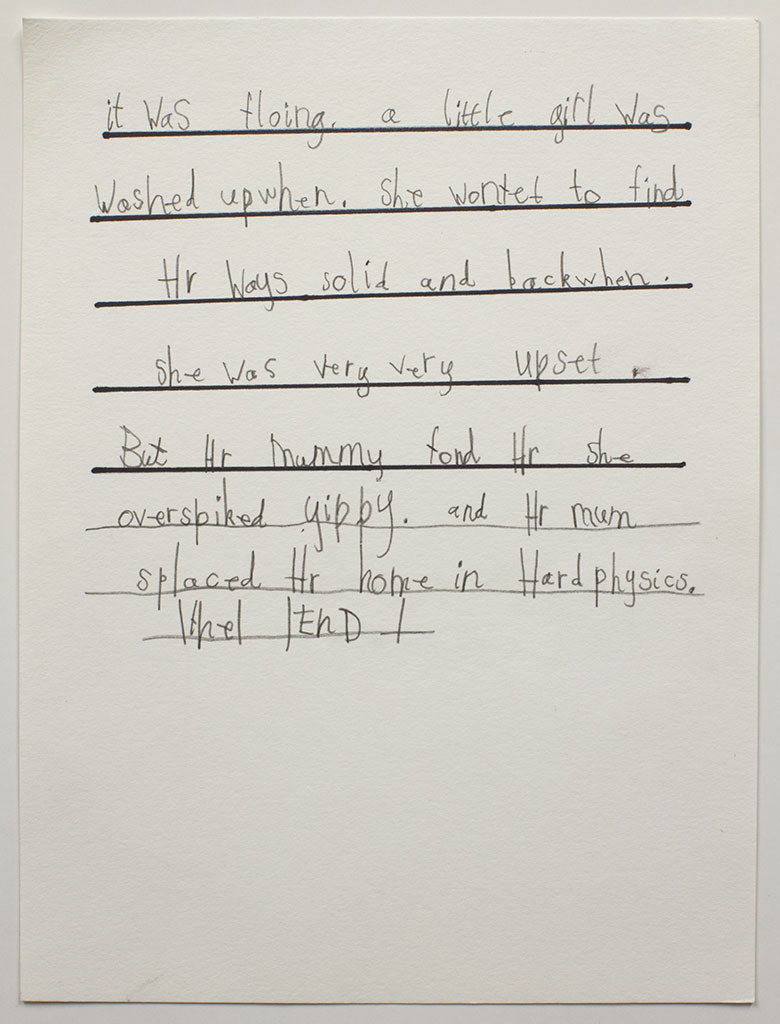 it was floing. a little girl was
washed upwhen. she wontet to find
Hr ways solid and backwhen.
she was very very upset.
But Hr mummy fond Hr she
overspiked yippy. and Hr mum
splaced Hr home in Hardphysics.
the END